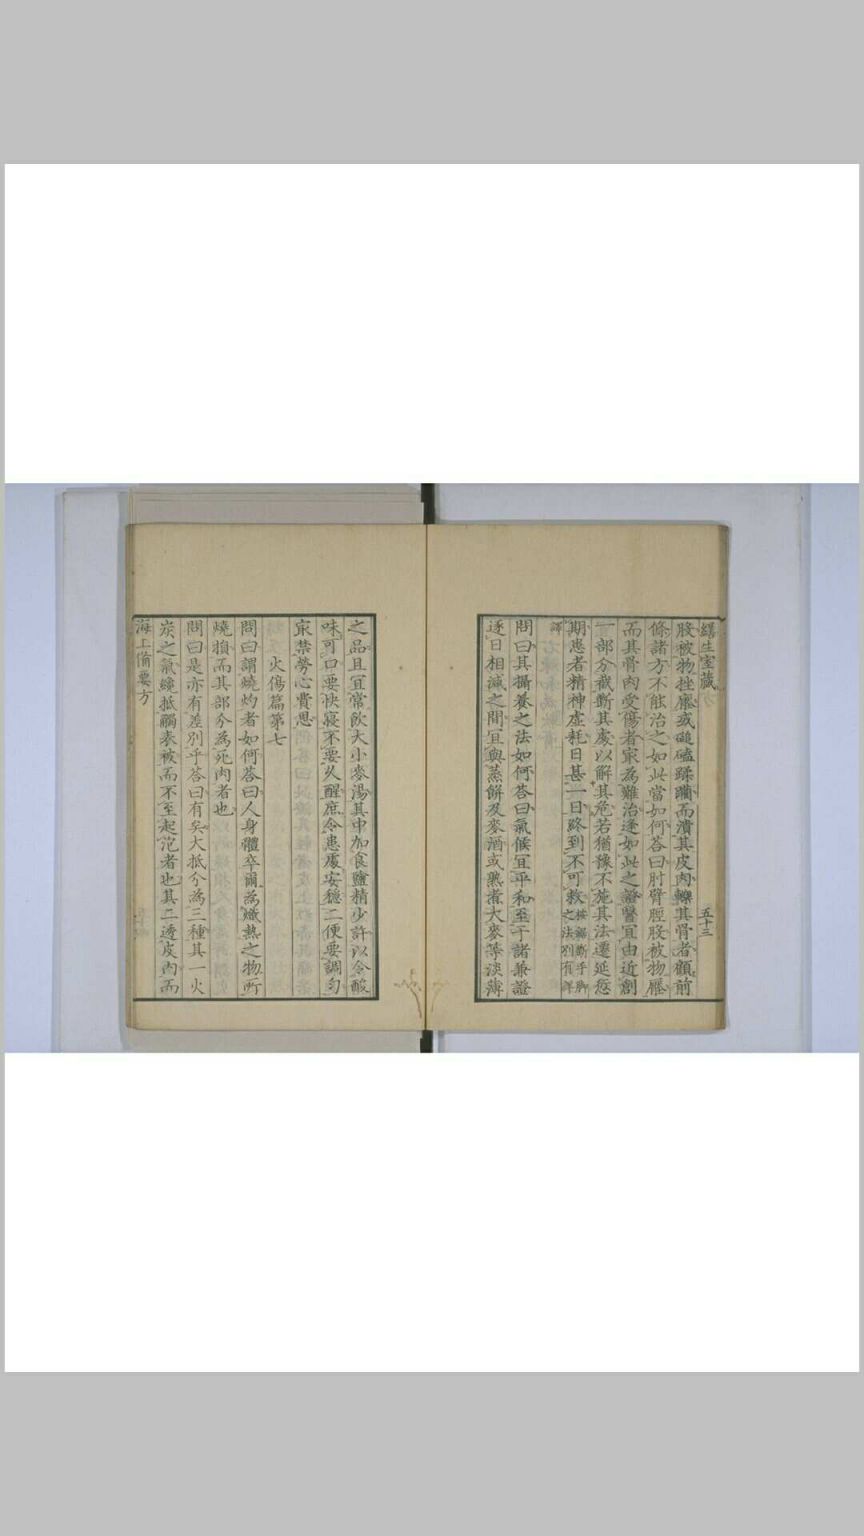 繹生室藏
五十三
股被物挫靡或磓磕蹂躪而潰其皮肉轢其骨者顧前
條諸方不能治之如此當如何答曰肘臂脛股被物壓
而其骨肉受傷者冣為難治逢如此之證醫宜由近創
一部分截斷其處以解其危若猶豫不施其法遷延愆
期患者精神虛耗日甚一日終到不可救
按截斷手脚
之法別有詳
譯
問曰其攝養之法如何答曰氣候宜平和至于諸兼證
逐日相減之間宜與蒸餅及麥酒或熟煮大麥等淡薄
之品且宜常飲大小麥湯其中加食鹽精少許以令酸
味可口要快寢不要久醒庶令患處安穩二便要調勻
冣禁勞心費思
火傷篇第七
問曰謂燒灼者如何答曰人身體卒爾為熾熱之物所
燒損而其部分為死肉者也
問曰是亦有差別乎答曰有矣大抵分為三種其一火
炭之氣纔抵觸表被而不至起泡者也其二透皮肉而
海上備要方